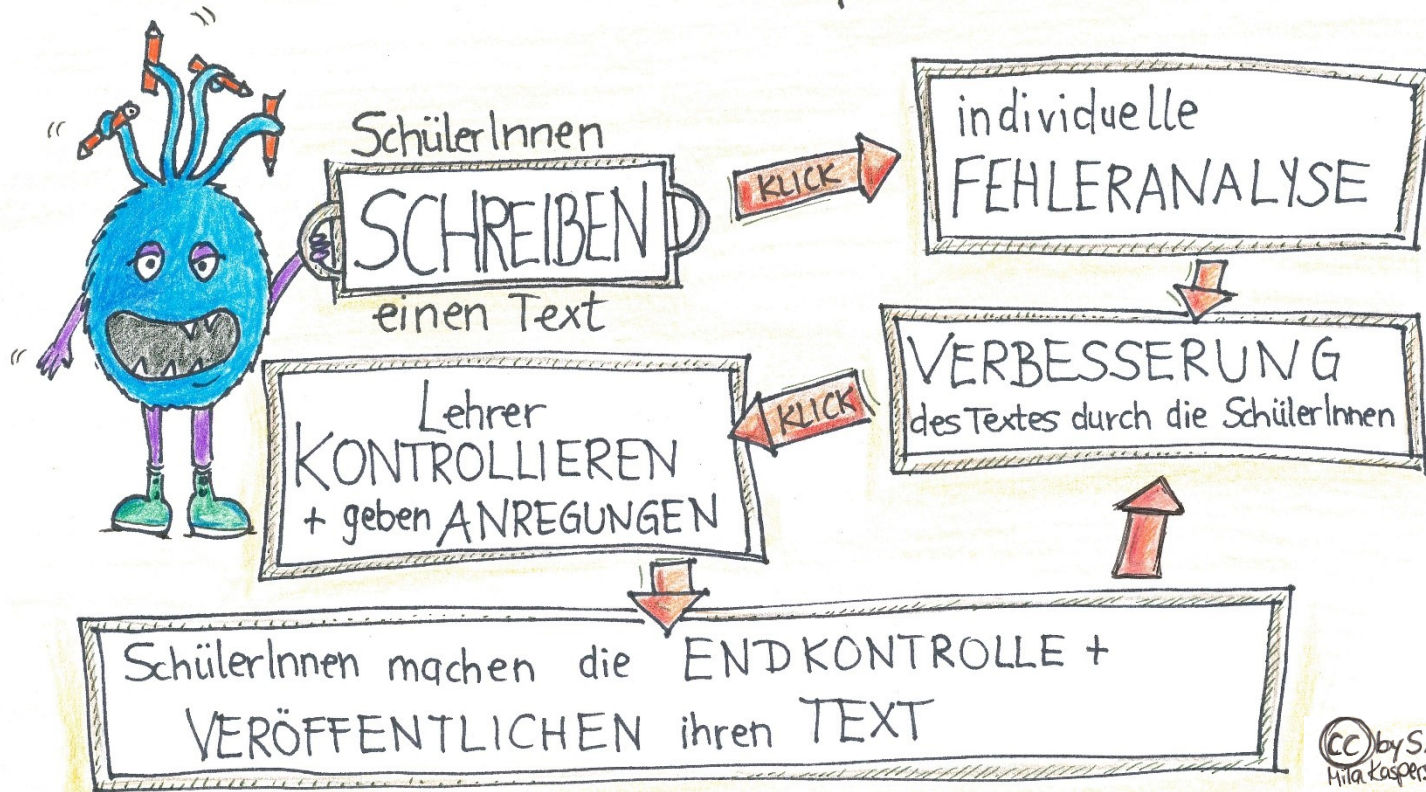 SchülerInnen
SCHREIBEN
einen Text
KLICK
individuelle
FEHLERANALYSE
VERBESSERUNG
des Textes durch die SchülerInnen
KLICK
Lehrer
KONTROLLIEREN
+ geben ANREGUNGEN
SchülerInnen machen die ENDKONTROLLE +
VERÖFFENTLICHEN ihren TEXT
cc by S.
Mila Kaspers